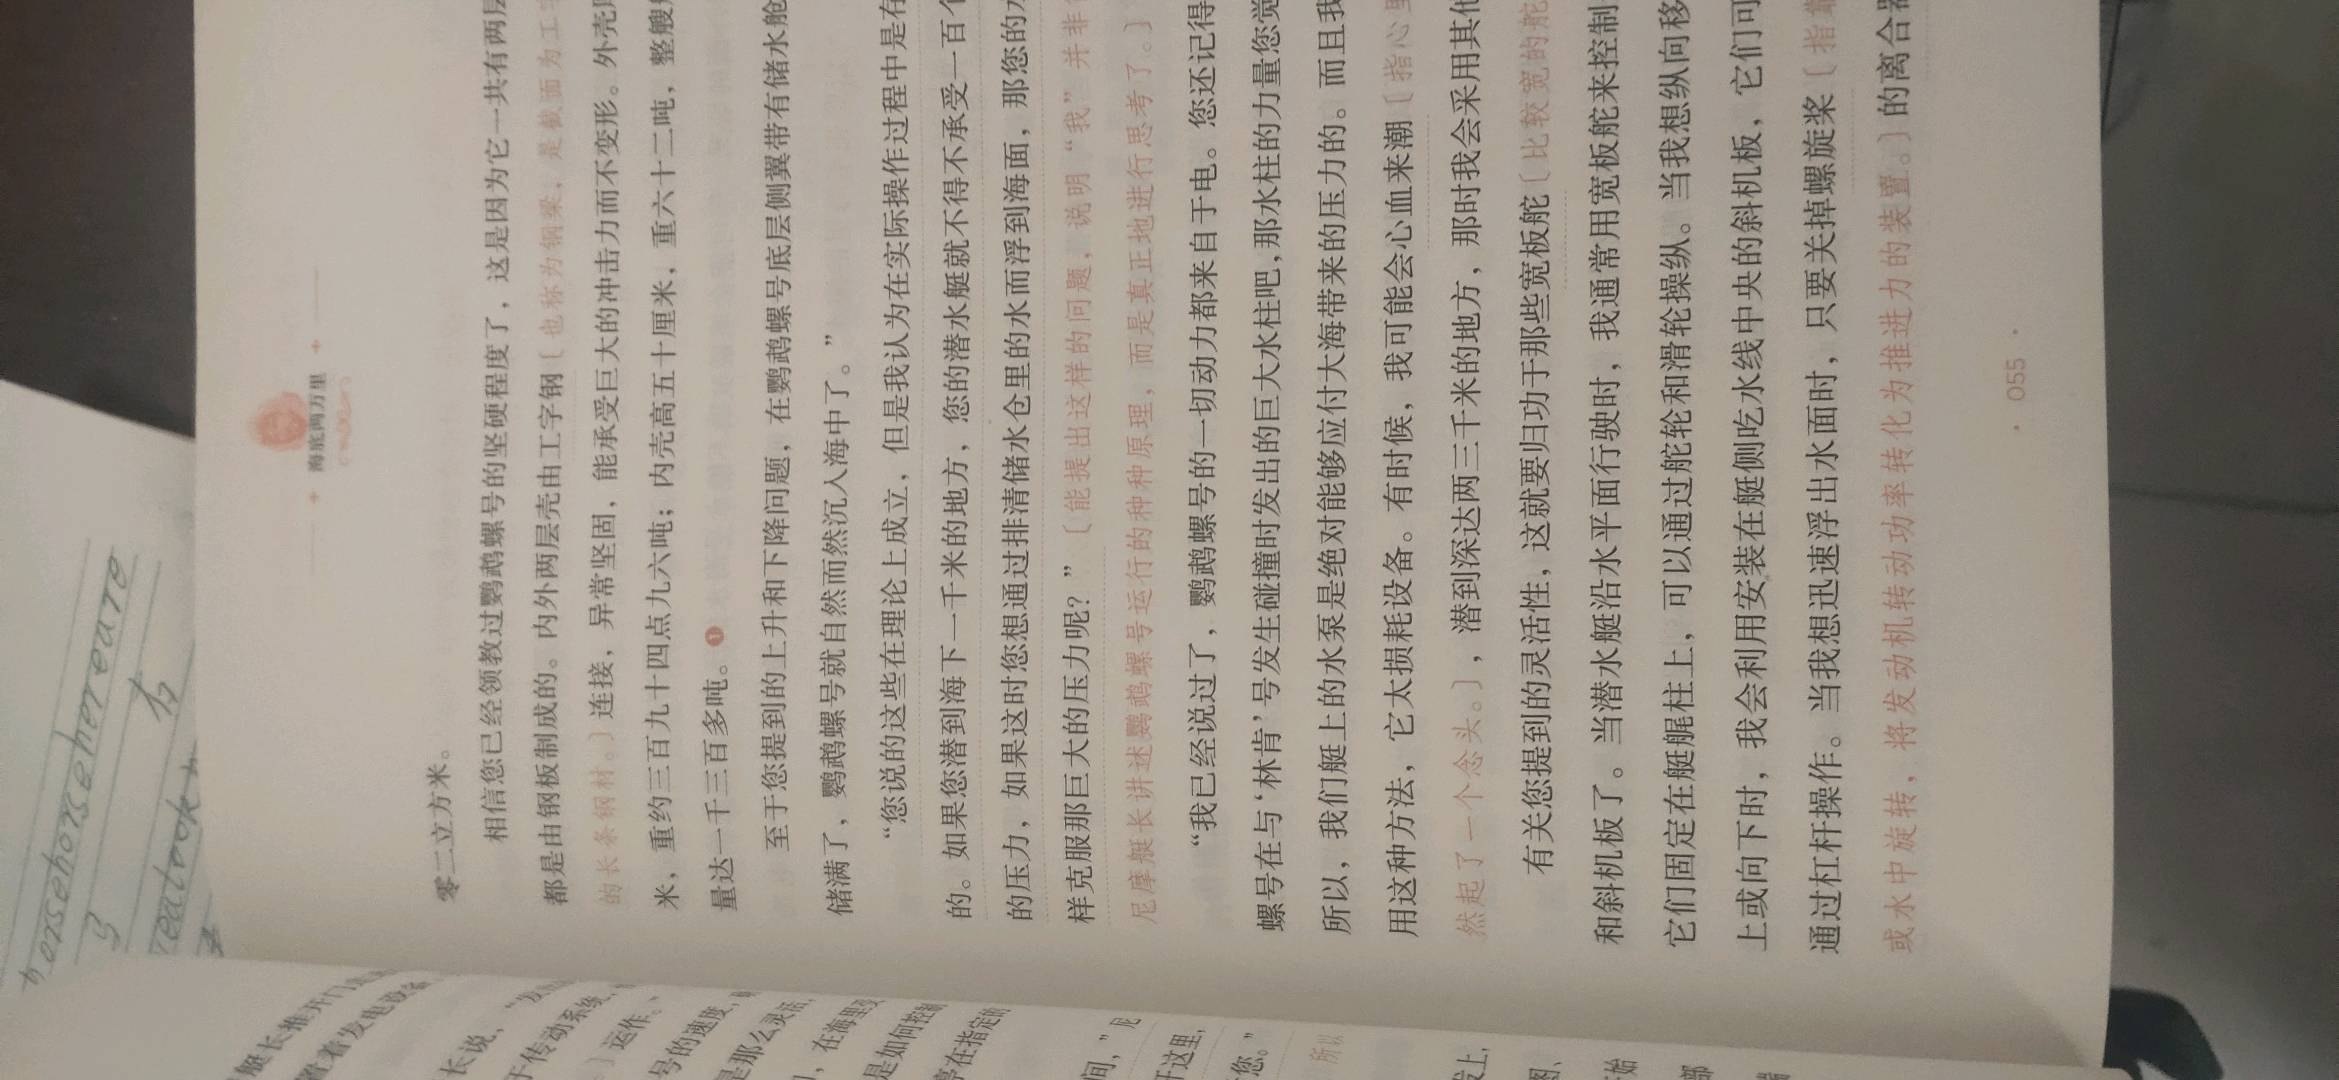 海底两万里
零二立方米。
相信您已经领教过鹦鹉螺号的坚硬程度了，这是因为它一共有两层
都是由钢板制成的。内外两层壳由工字钢〔也称为钢梁，是截面为工字
的长条钢材。〕连接，异常坚固，能承受巨大的冲击力而不变形。外壳
米，重约三百九十四点九六吨；内壳高五十厘米，重六十二吨，整艘
量达一千三百多吨。❶
至于您提到的上升和下降问题，在鹦鹉螺号底层侧翼带有储水舱
储满了，鹦鹉螺号就自然而然沉入海中了。”
“您说的这些在理论上成立，但是我认为在实际操作过程中是有
的。如果您潜到海下一千米的地方，您的潜水艇就不得不承受一百个
的压力，如果这时您想通过排清储水仓里的水而浮到海面，那您的
样克服那巨大的压力呢？”〔能提出这样的问题，说明“我”并非
尼摩艇长讲述鹦鹉螺号运行的种种原理，而是真正地进行思考了。〕
“我已经说过了，鹦鹉螺号的一切动力都来自于电。您还记得
螺号在与‘林肯’号发生碰撞时发出的巨大水柱吧，那水柱的力量您觉
所以，我们艇上的水泵是绝对能够应付大海带来的压力的。而且我
用这种方法，它太损耗设备。有时候，我可能会心血来潮〔指心里
然起了一个念头。〕，潜到深达两三千米的地方，那时我会采用其他
有关您提到的灵活性，这就要归功于那些宽板舵〔比较宽的舵
和斜机板了。当潜水艇沿水平面行驶时，我通常用宽板舵来控制
它们固定在艇艉柱上，可以通过舵轮和滑轮操纵。当我想纵向移
上或向下时，我会利用安装在艇侧吃水线中央的斜机板，它们可
通过杠杆操作。当我想迅速浮出水面时，只要关掉螺旋桨〔指靠
或水中旋转，将发动机转动功率转化为推进力的装置。〕的离合器
· 055 ·
艇长推开门
置着发电设备
长说，“发
于传动系统
〕运作。
号的速度，
是那么灵活，
，在海里
是如何控制
停在指定的
间，”尼
于这里，
您。”
所以